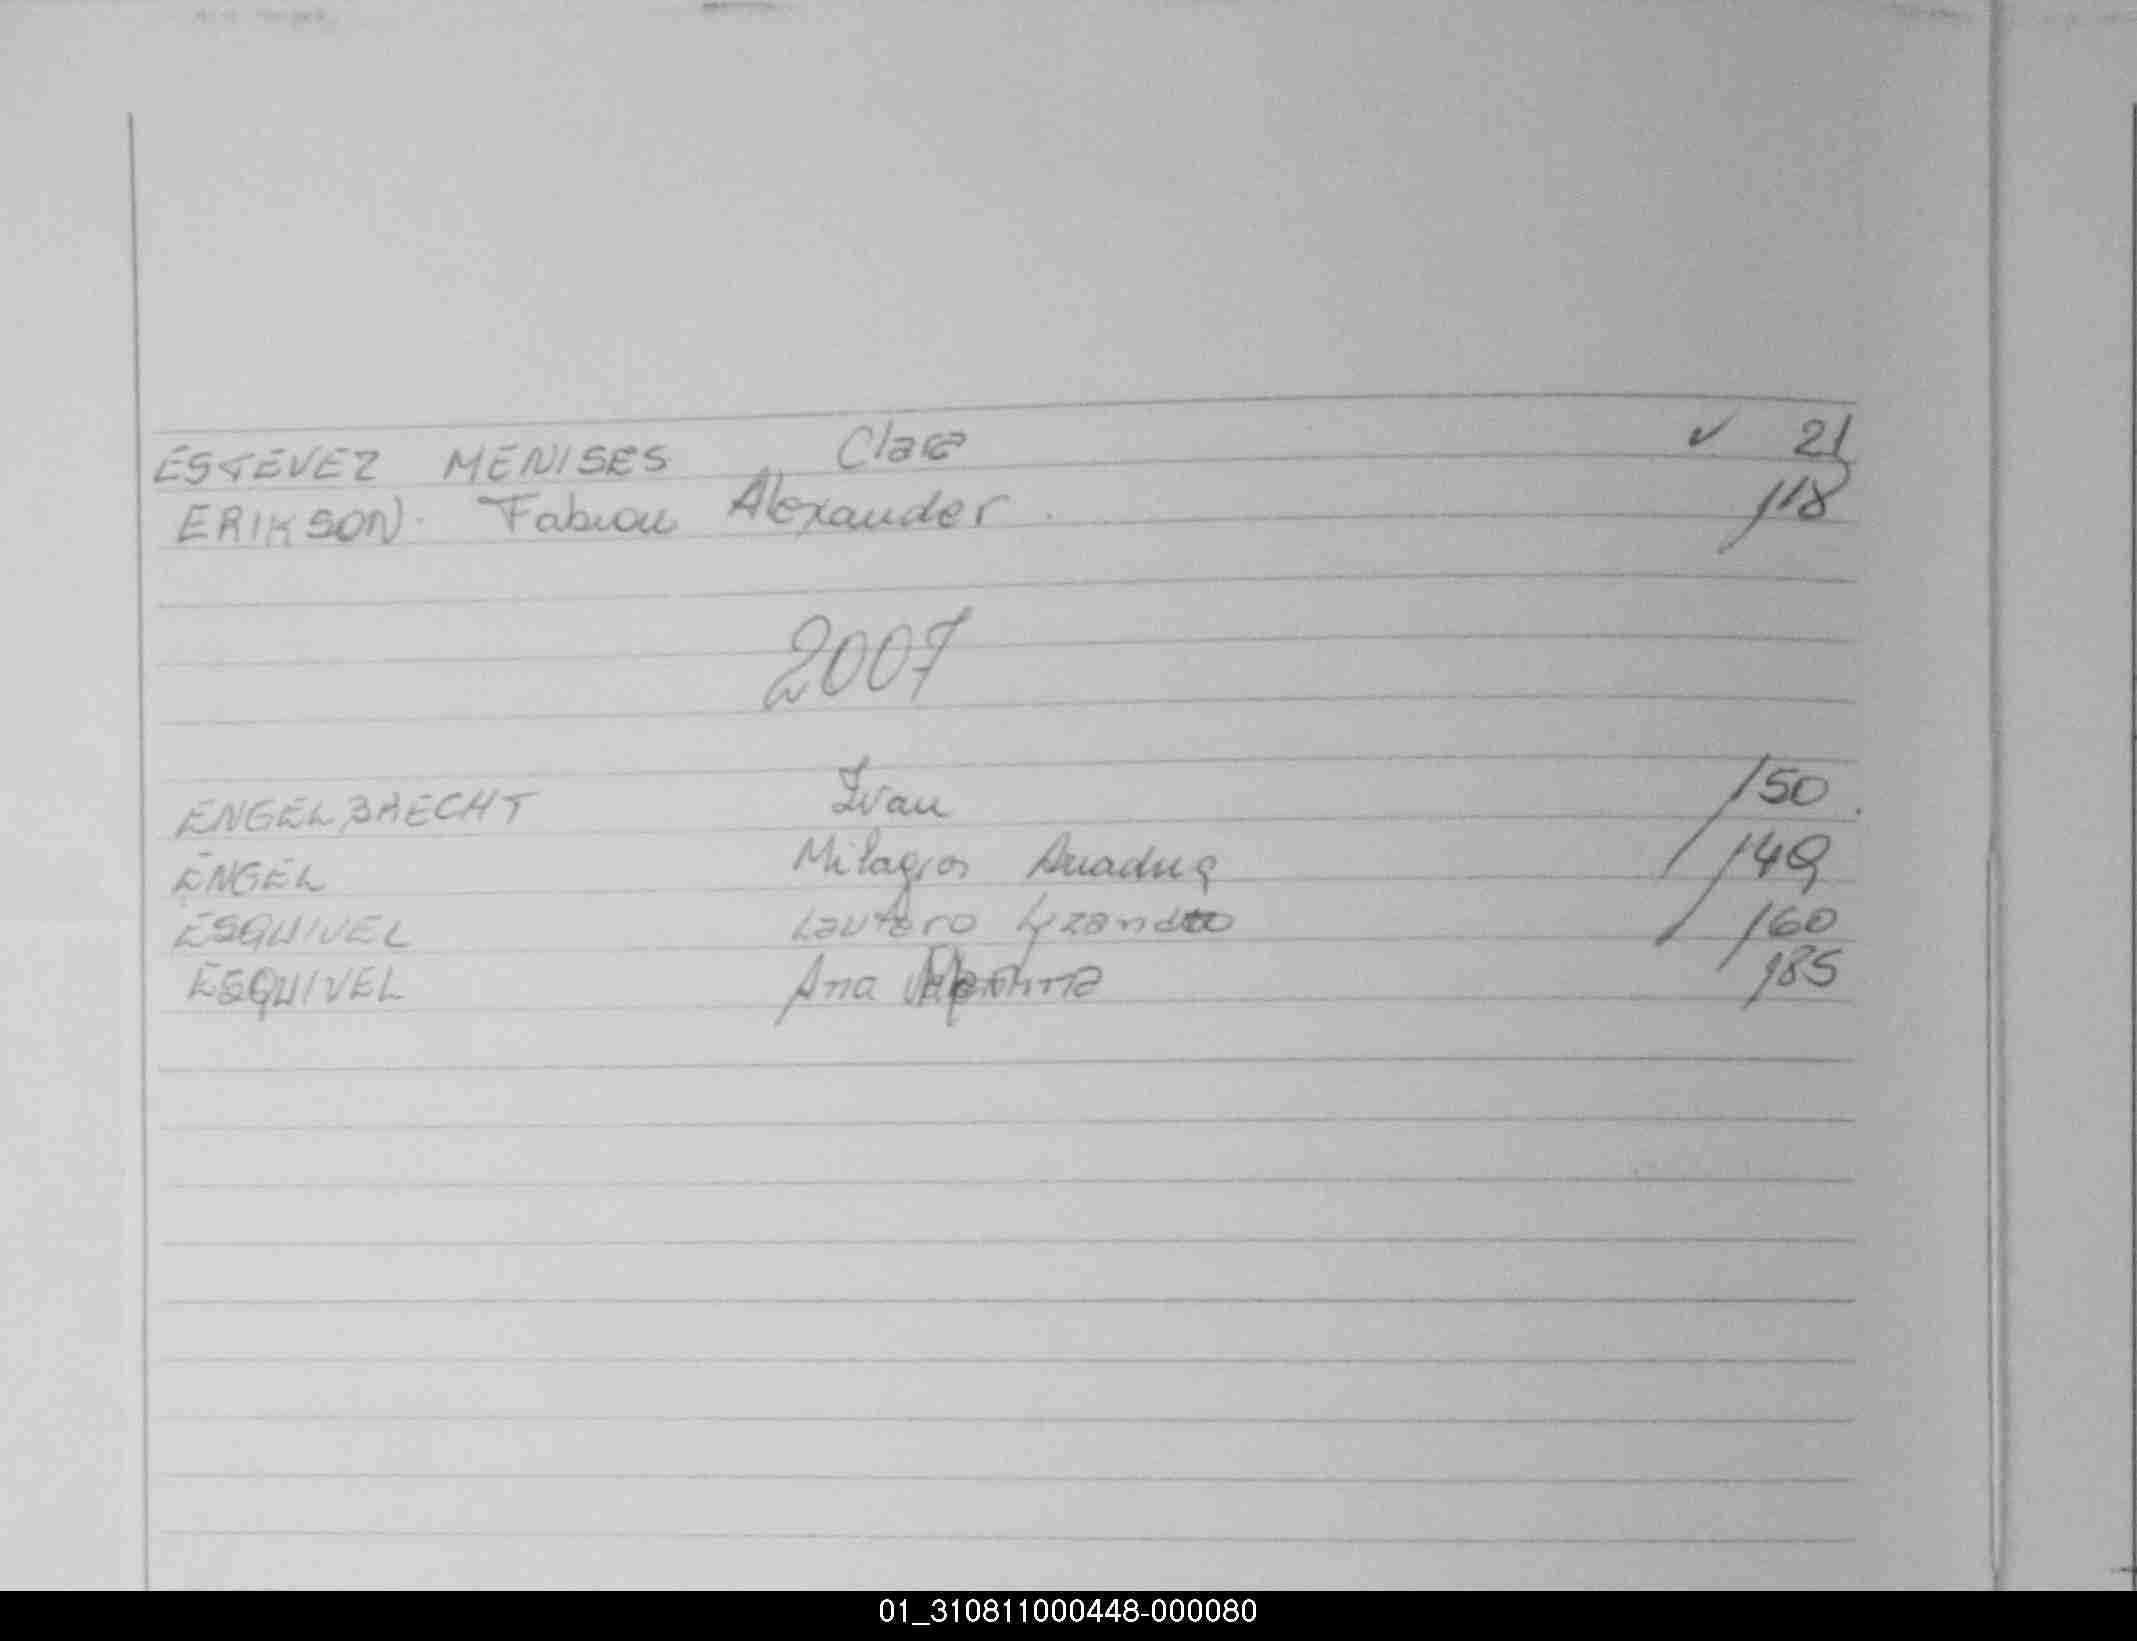 ESTEVEZ MENISES Clara ✓ 21
ERIKSON. Fabian Alexander. 118
2007
ENGELBRECHT Ivan 150.
ENGEL Milagros Ariadna 149
ESQUIVEL Lautaro Lizandro 160
ESQUIVEL Ana 185
01_310811000448-000080